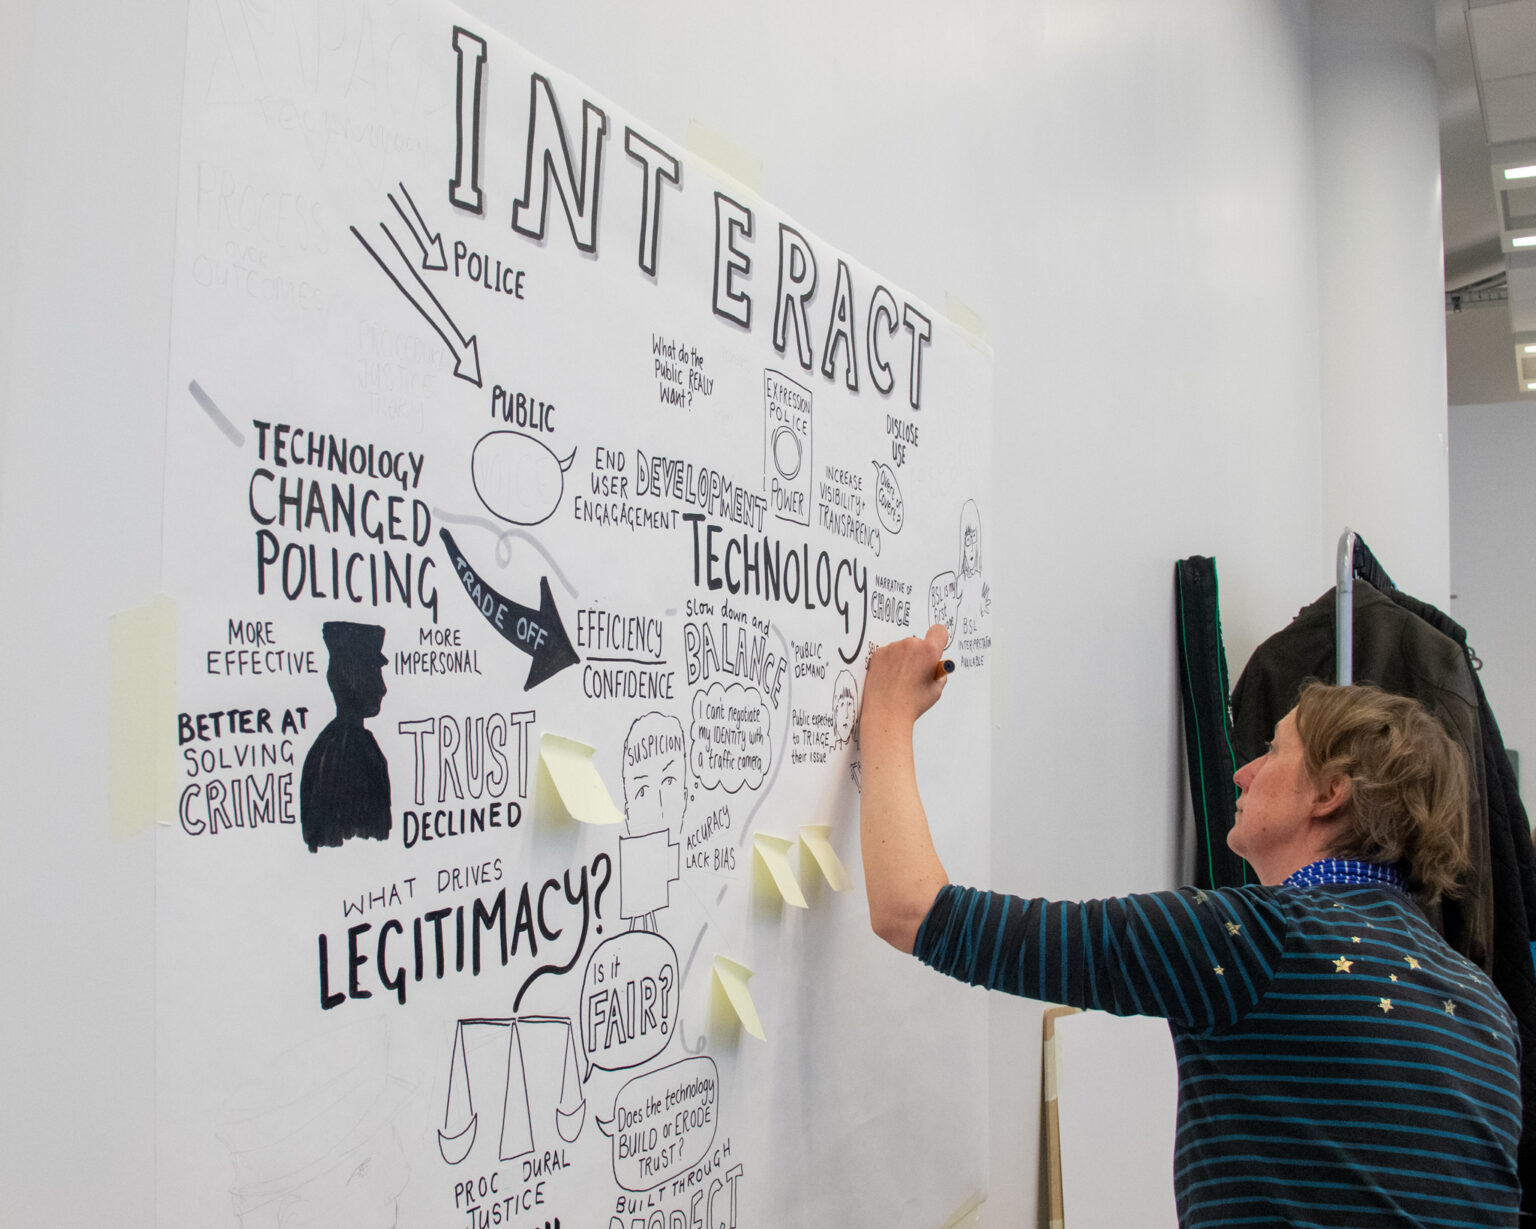 INTERACT
POLICE
PUBLIC
PROCESS
OVER
OUTCOMES
What do the
Public REALLY
Want?
EXPRESSION
POLICE
POWER
DISCLOSE
USE
Overt or
Covert?
INCREASE
VISIBILITY +
TRANSPARENCY
END
USER
ENGAGAGEMENT
DEVELOPMENT
TECHNOLOGY
TECHNOLOGY
CHANGED
POLICING
TRADE OFF
MORE
EFFECTIVE
MORE
IMPERSONAL
BETTER AT
SOLVING
CRIME
TRUST
DECLINED
EFFICIENCY
CONFIDENCE
Slow down and
BALANCE
NARRATIVE OF
CHOICE
BSL is my
first
BSL
INTERPRETATION
AVAILABLE
"PUBLIC
DEMAND"
Public expected
to TRIAGE
their issue
SUSPICION
I can't negotiate
my IDENTITY with
a traffic camera
ACCURACY
LACK BIAS
WHAT DRIVES
LEGITIMACY?
IS it
FAIR?
Does the technology
BUILD or ERODE
TRUST?
BUILT THROUGH
PROC DURAL
JUSTICE